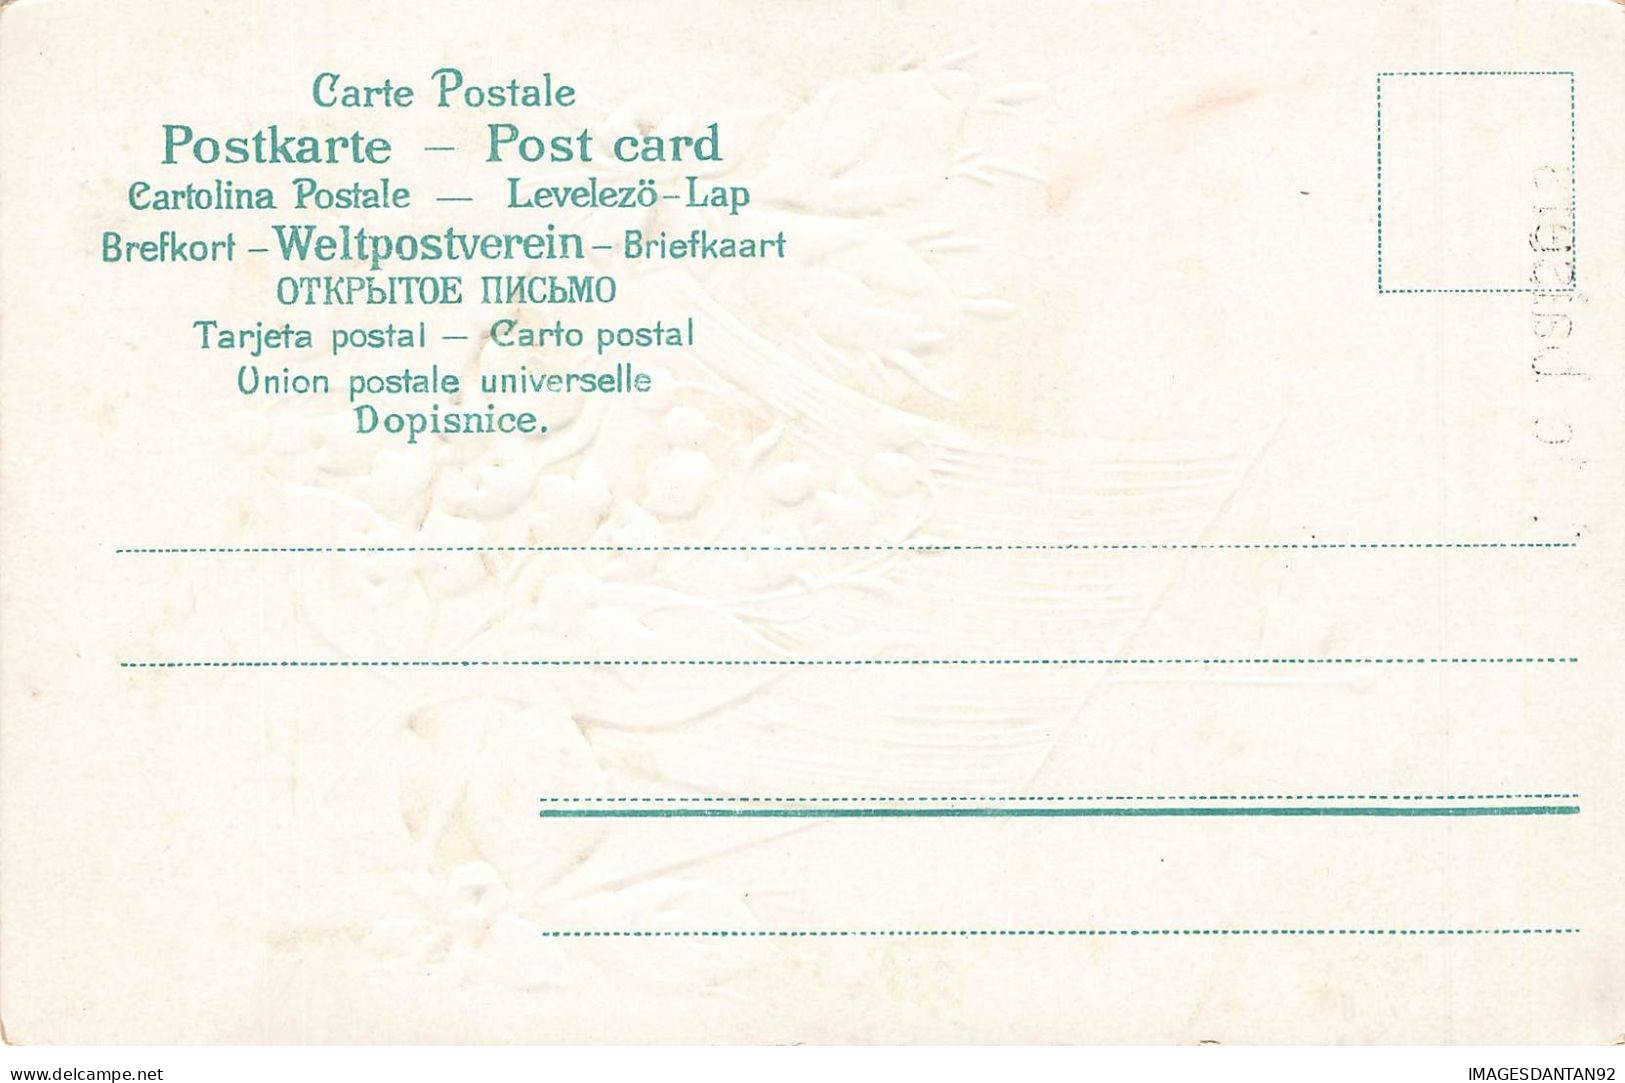 Carte Postale
Postkarte – Post card
Cartolina Postale — Levelezö-Lap
Brefkort – Weltpostverein – Briefkaart
ОТКРЫТОЕ ПИСЬМО
Tarjeta postal — Carto postal
Union postale universelle
Dopisnice.
www.delcampe.net
IMAGESDANTAN92